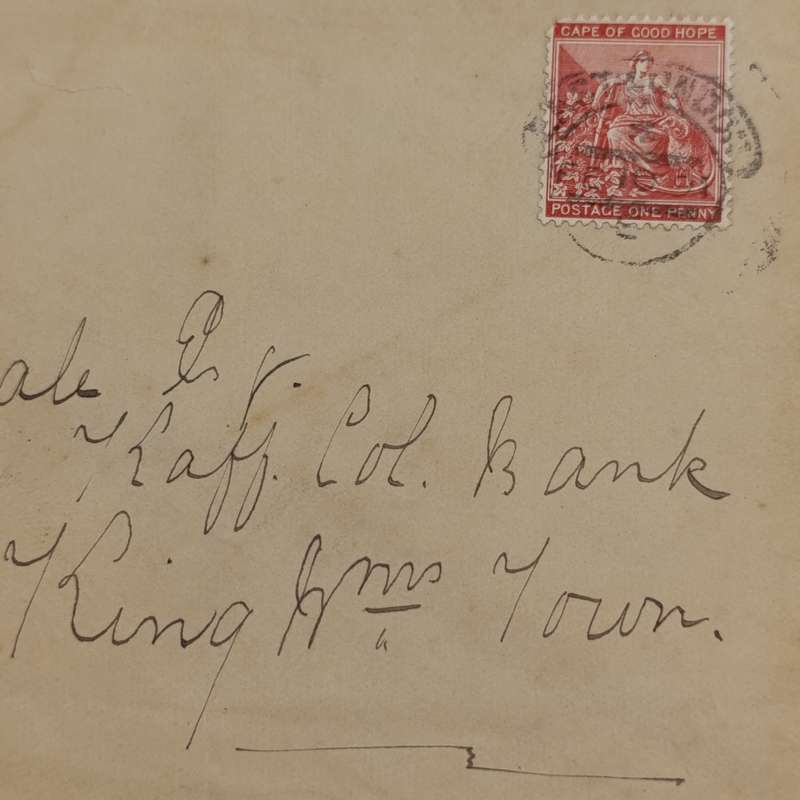 CAPE OF GOOD HOPE
POSTAGE ONE PENNY
ale Esqr.
Kaff. Col. Bank
King Wms Town.